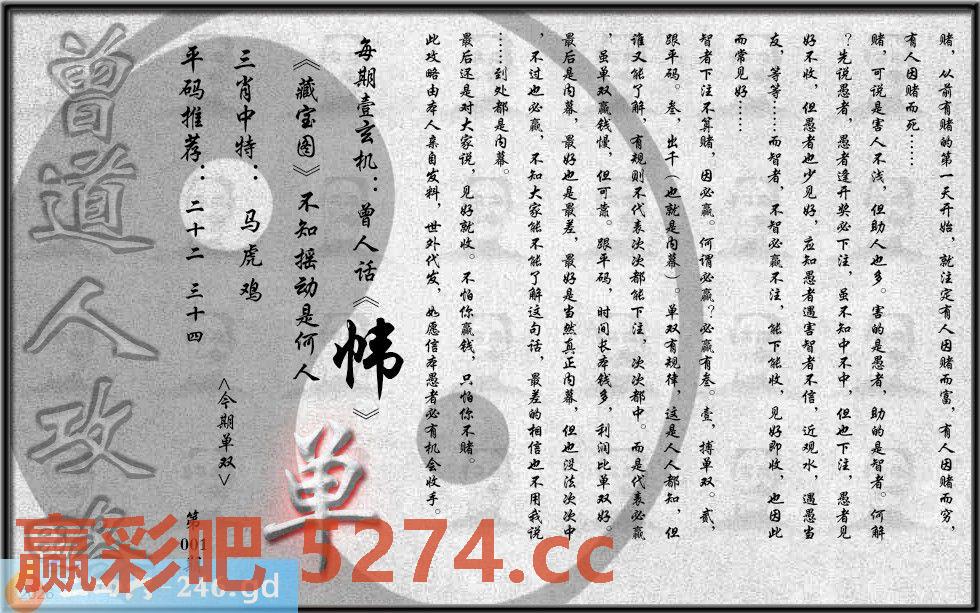 赌，从前有赌的第一天开始，就注定有人因赌而富，有人因赌而穷，
有人因赌而死……
赌，可说是害人不浅，但助人也多。害的是愚者，助的是智者。何解
？先说愚者，愚者逢开奖必下注，虽不知中不中，但也下注，愚者见
好不收，但愚者也少见好，应知愚者遇害智者不信，近观水，遇愚当
友，等等……而智者，不智必赢不注，能下能收，见好即收，也因此
而常见好……
智者下注不算赌，因必赢。何谓必赢？必赢有叁。壹，搏单双。贰，
跟平码。叁，出千（也就是内幕）。单双有规律，这是人人都知，但
谁又能了解，有规则不代表次次都能下注，次次都中。而是代表必赢
，虽单双赢钱慢，但可靠。跟平码，时间长本钱多，利润比单双好。
最后是内幕，最好也是最差，最好是当然真正内幕，但也没法次次中
，不过也必赢，不知大家能不能了解这句话，最差的相信也不用我说
……到处都是内幕。
最后还是对大家说，见好就收。不怕你赢钱，只怕你不赌。
此攻略由本人亲自发料，世外代发，如愿信本愚者必有机会收手。
每期壹玄机：曾人话《帏》
《藏宝图》不知摇动是何人
单
三肖中特：马虎鸡
<今期单双>
平码推荐：二十二 三十四
第001
曾道人攻
赢彩吧 5274.cc
-246.gd